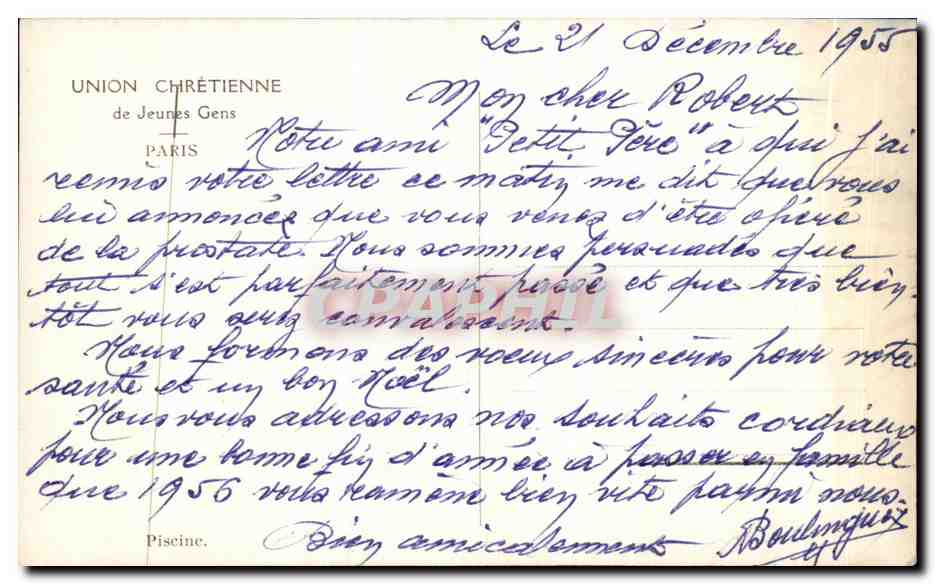 Le 21 Décembre 1955
UNION CHRÉTIENNE
de Jeunes Gens
PARIS
Mon cher Robert
Notre ami "Petit Père" à qui j'ai
remis votre lettre ce matin me dit que vous
lui annoncés que vous venez d'être opéré
de la prostate. Nous sommes persuadés que
tout s'est parfaitement passé et que très bien-
tôt vous serez convalescent.
CPAPHIL
Nous formons des voeux sincères pour votre
santé et un bon Noël.
Nous vous adressons nos souhaits cordiaux
pour une bonne fin d'année à passer en famille
que 1956 vous ramène bien vite parmi nous.
Bien amicalement
Piscine.